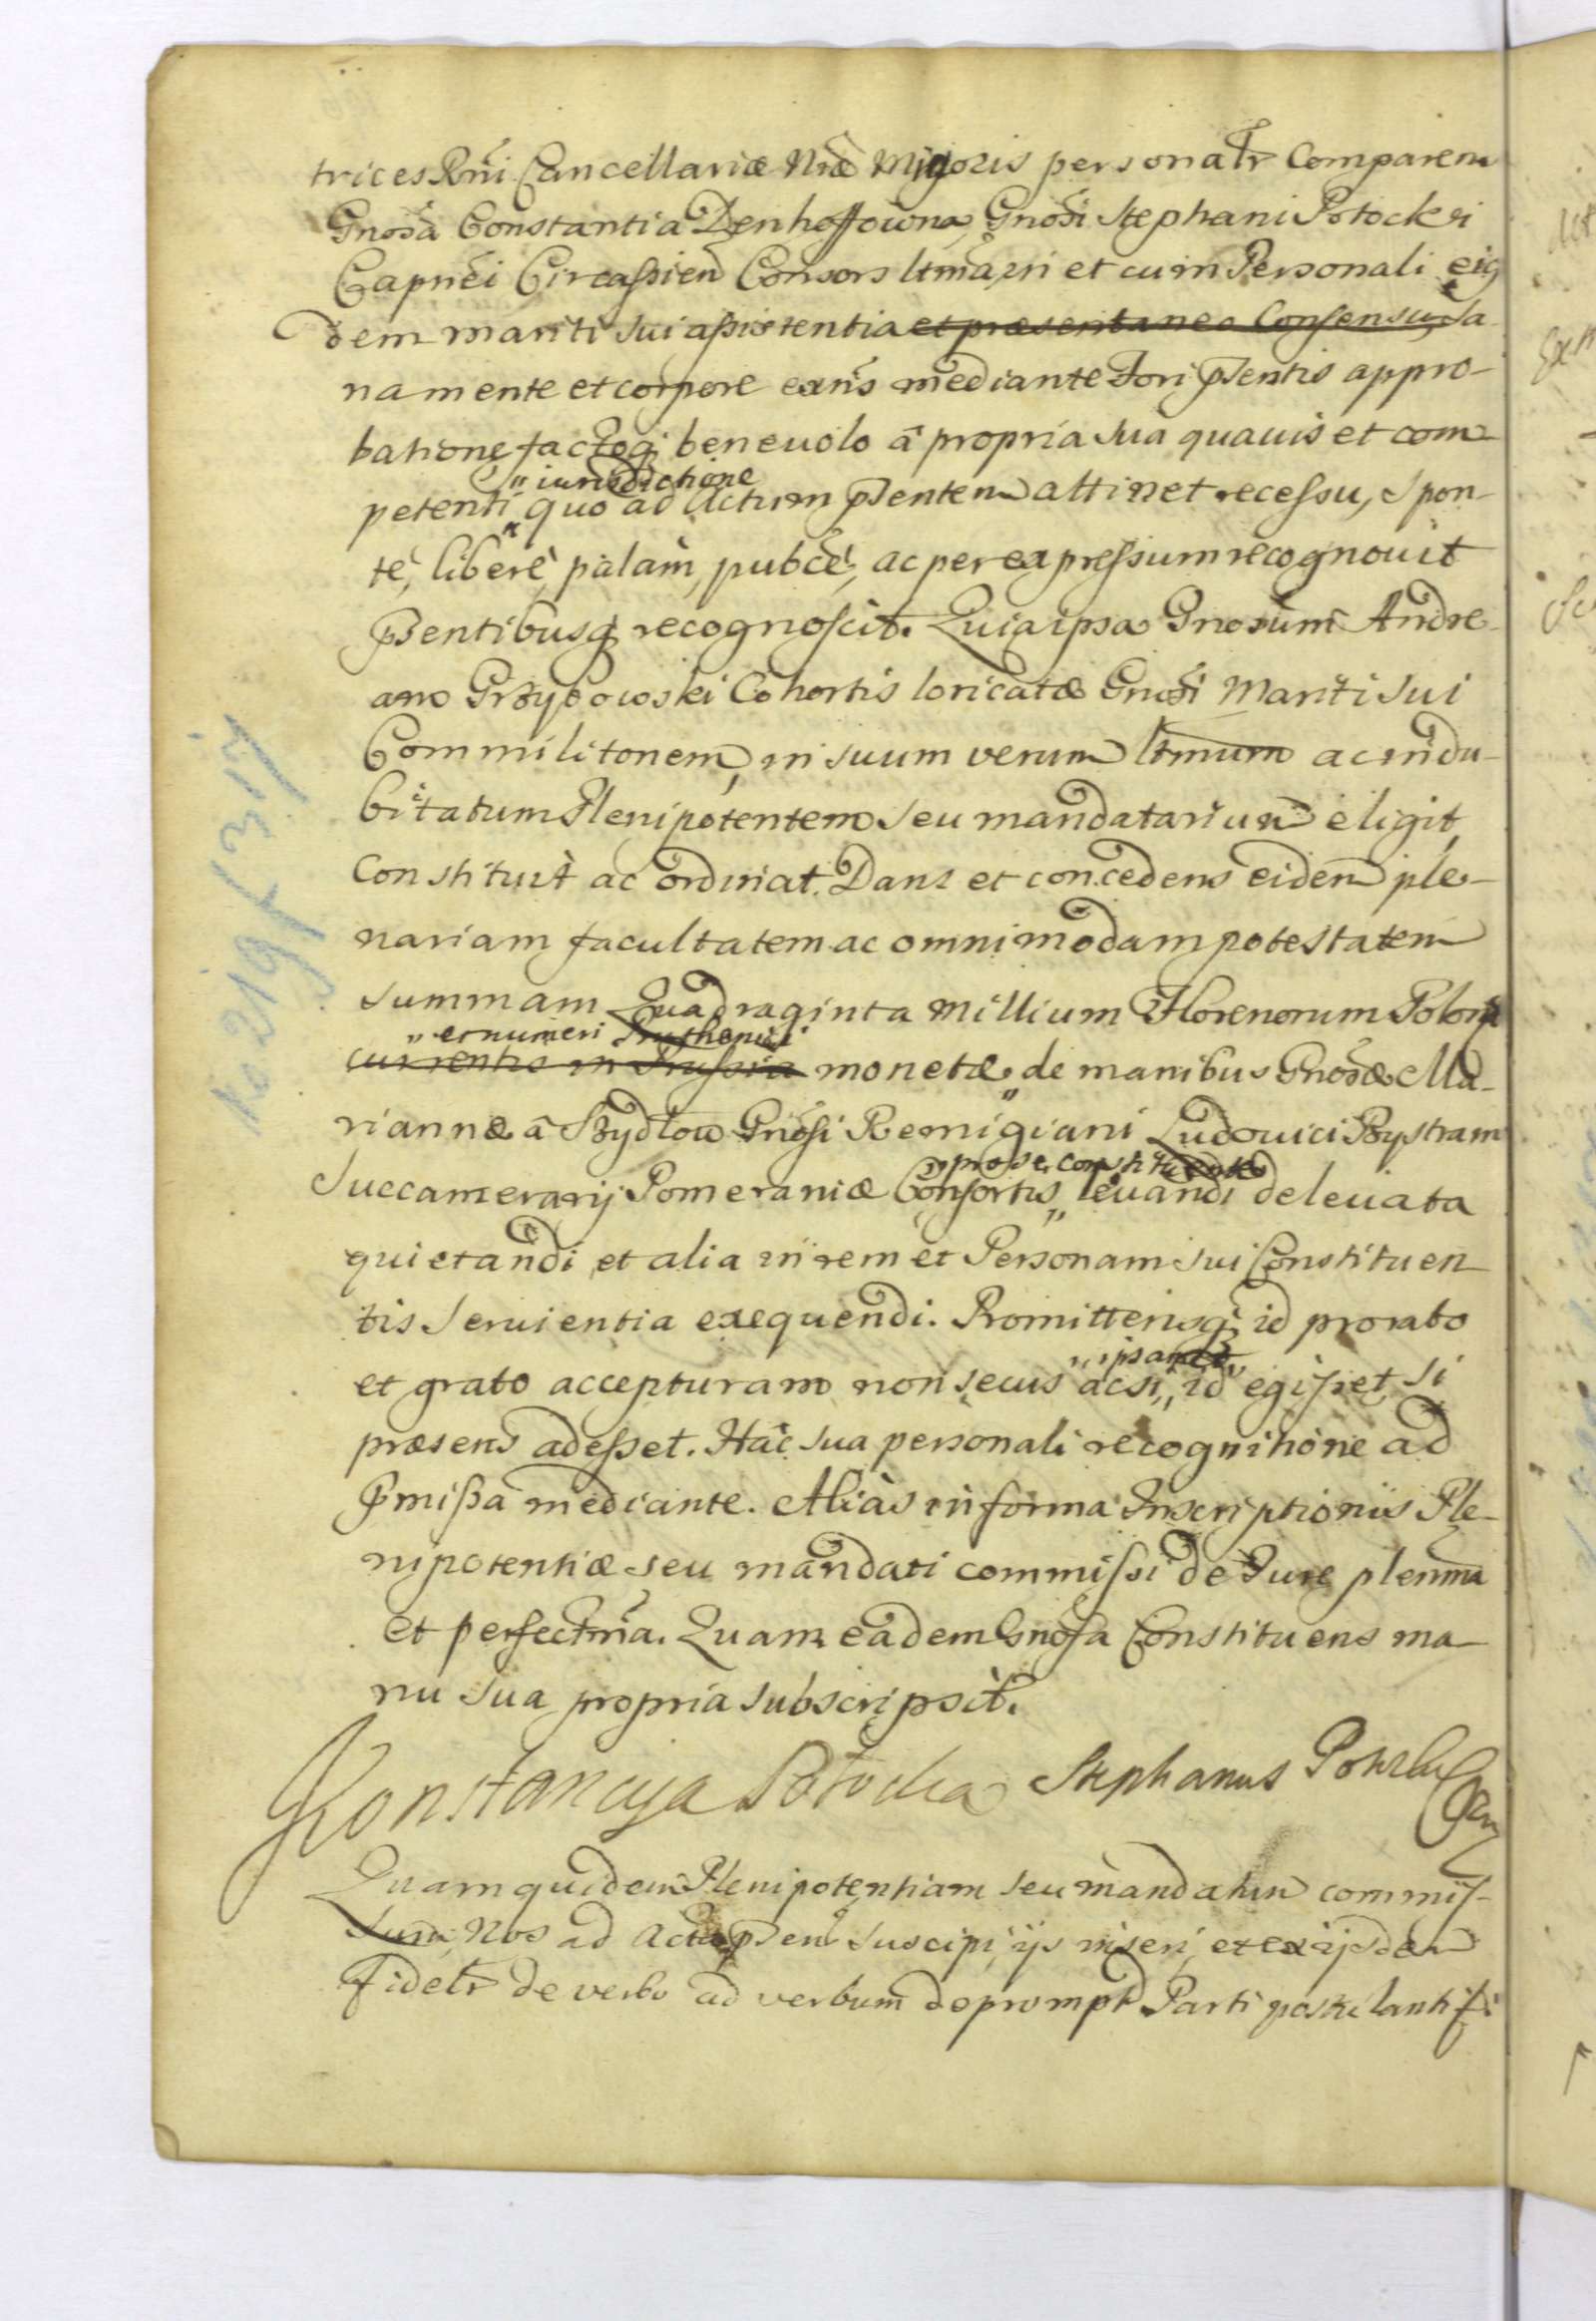 trices Rñi Cancellariæ Nræ Majoris personalr Comparens
Gnosa Constantia Denhoffowna, Gnosi Stephani Potocki
Capnei Circassien Consors ltma, ni et cum Personali eius
dem mariti sui assistentia et præsentaneo Consensu, Sa
na mente et corpore exns mediante Fori pñtentis appro-
batione factoq benevolo â propria sua quavis et com-
„ iurisdictione
petenti quo ad Actum pñtentem attinet recessu, spon-
te, liberè, palàm, pubcè, ac per expressum recognovit
pñtentibusq recognoscit. Quia ipsa Gnosum Andre
am Grzybowski Cohortis loricatæ Gnosi Mariti sui
Commilitonem, in suum verum ltmum ac indu-
bitatum Plenipotentem seu mandatarium eligit,
Constituit ac ordinat. Dans et concedens eidem ple-
nariam facultatem ac omnimodam potestatem
summam Quadraginta Millium Florenorum Polon
„ et numeri Pruthenici
currentis in Prussia monetæ „ de manibus Gnosæ Ma-
riannæ â Bzydlow Gnosi Remigiani Ludovici Bystram
„ pro se constituente
Succamerarij Pomeraniæ Consortis „ levandi de levata
quietandi, et alia in rem et Personam sui Constituen
tis servientia exequendi. Promittensq id pro rato
„ ipsamet „
et grato accepturam non secus acsi „ id egisset, si
præsens adesset. Hac sua personali recognitione ad
pmissa mediante. Aliàs in forma Inscriptionis Ple-
nipotentiæ seu mandati commissi de Jure plenma
et perfectma. Quam eadem Gnosa Constituens ma-
nu sua propria subscripsit.
Konstancyja Potocka Stephanus Potocki
Quam quidem Plenipotentiam seu mandatum commis-
sum, Nos ad Acta pñten suscipi, ijs inseri, et ex ijsdem
fidelr de verbo ad verbum deprompt Parti postulanti
No 219 f 317